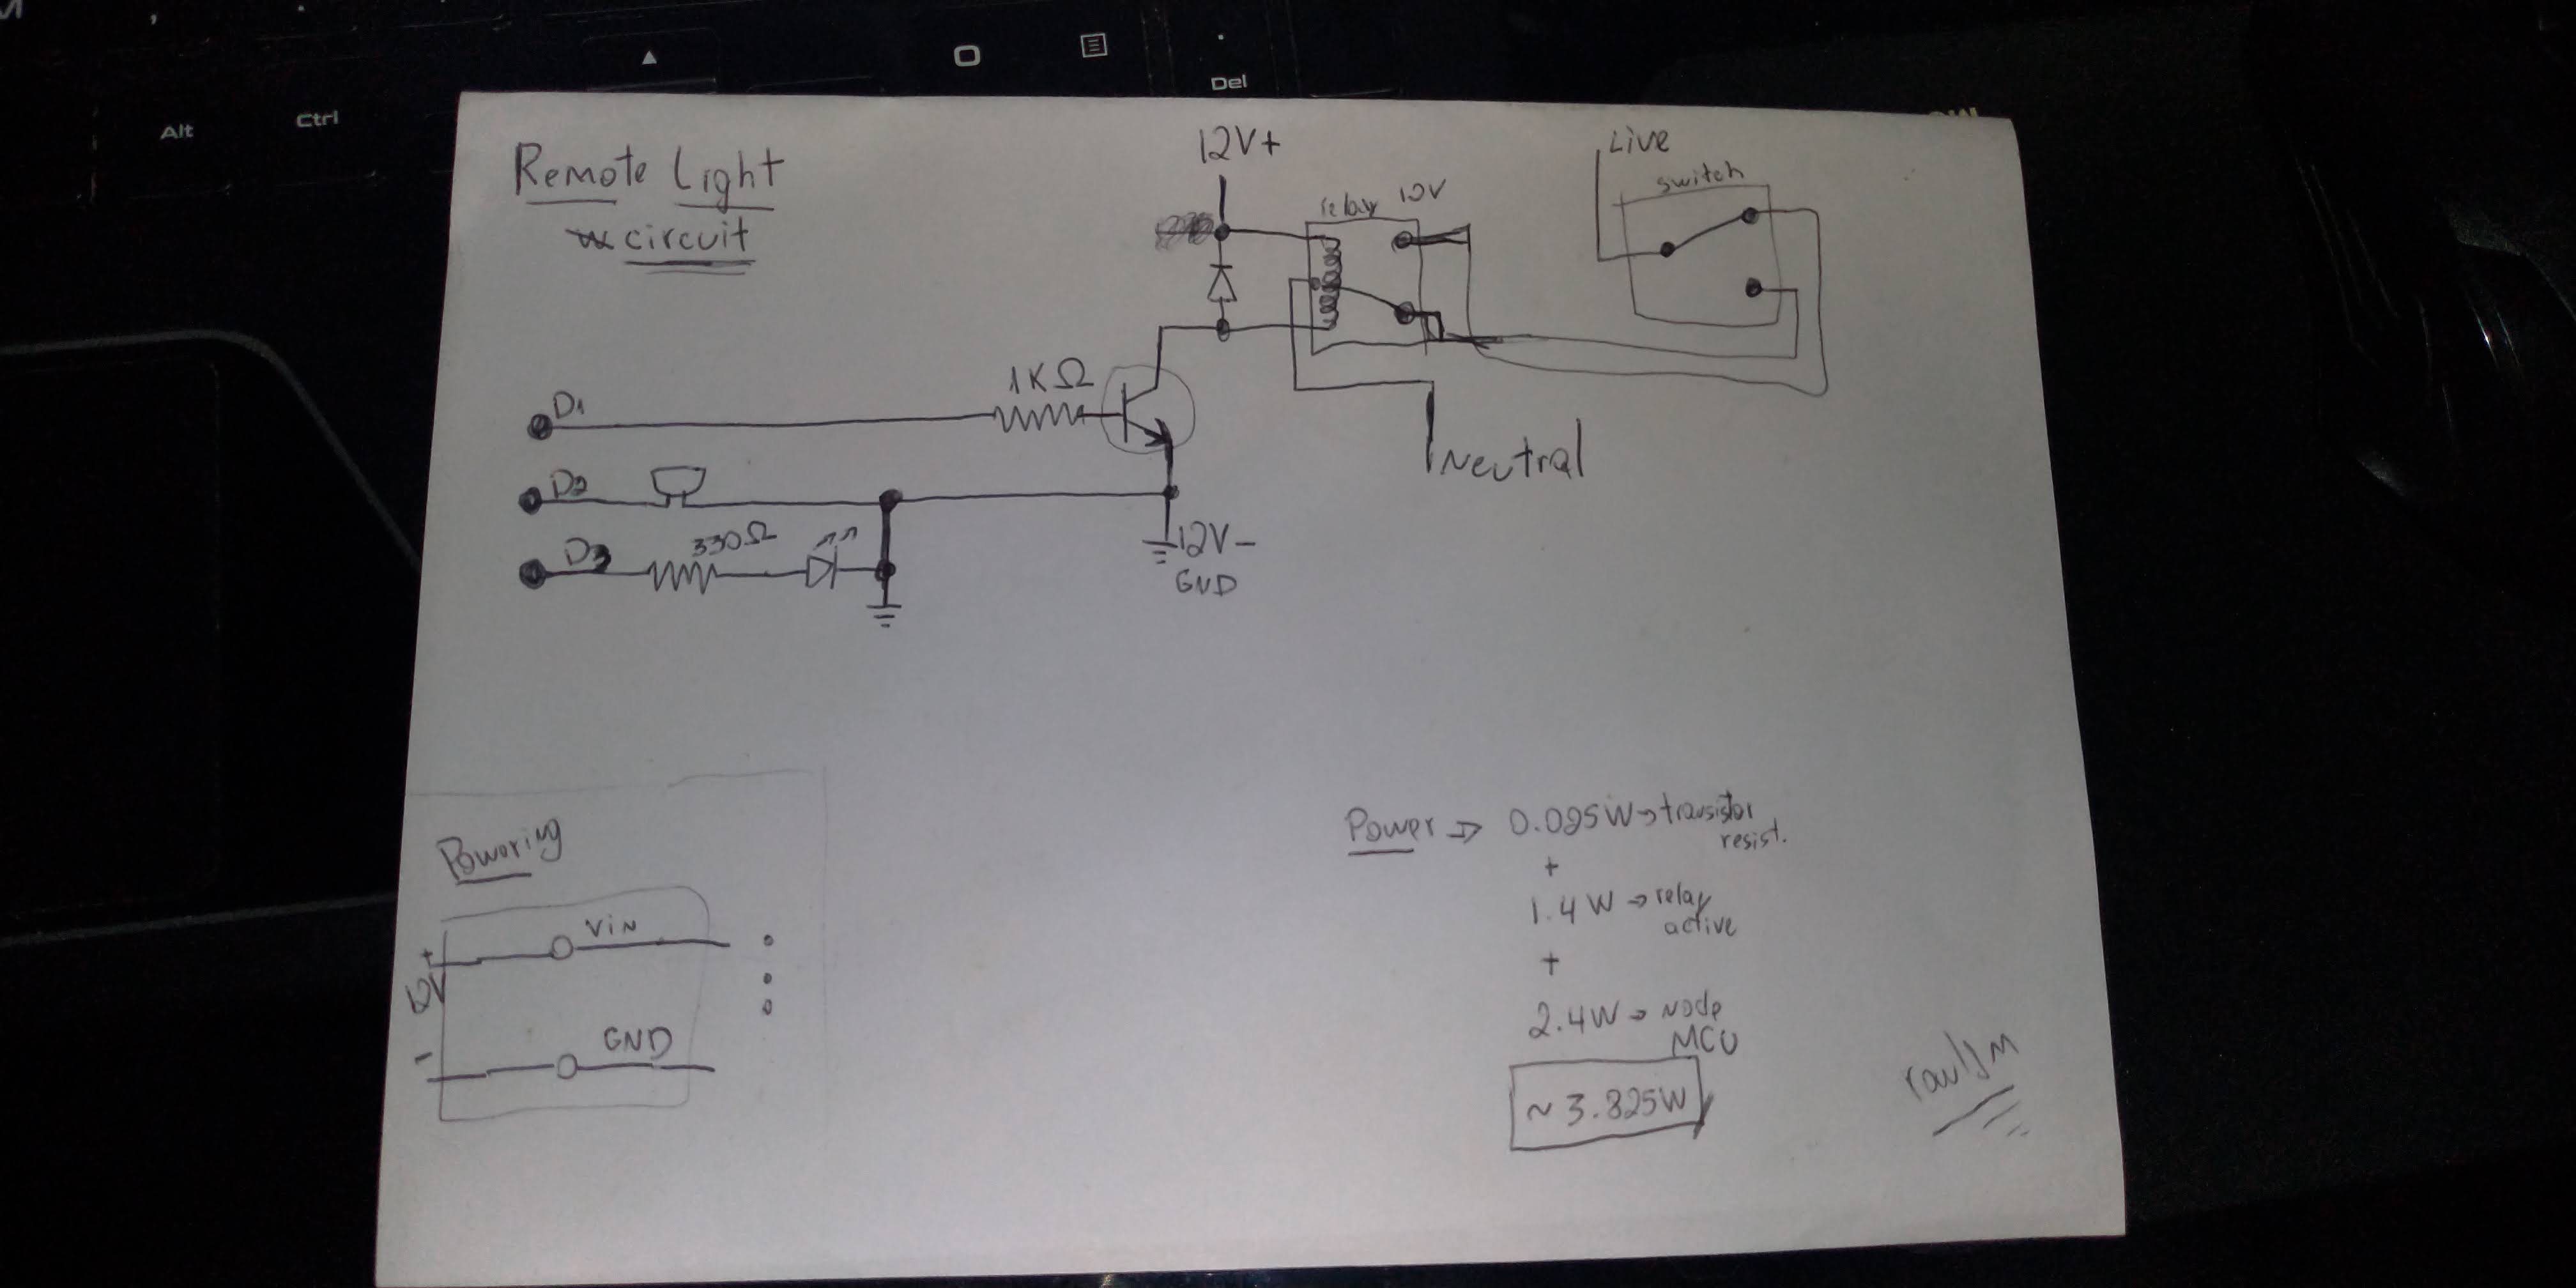 Alt
Ctrl
Del
Remote Light
circuit
12V+
relay 12V
Live
switch
1KΩ
D1
D2
D3
330Ω
12V-
GND
Neutral
Powering
+
12V
-
VIN
GND
Power => 0.025W→transistor
resist.
+
1.4W → relay
active
+
2.4W → Node
MCU
~ 3.825W